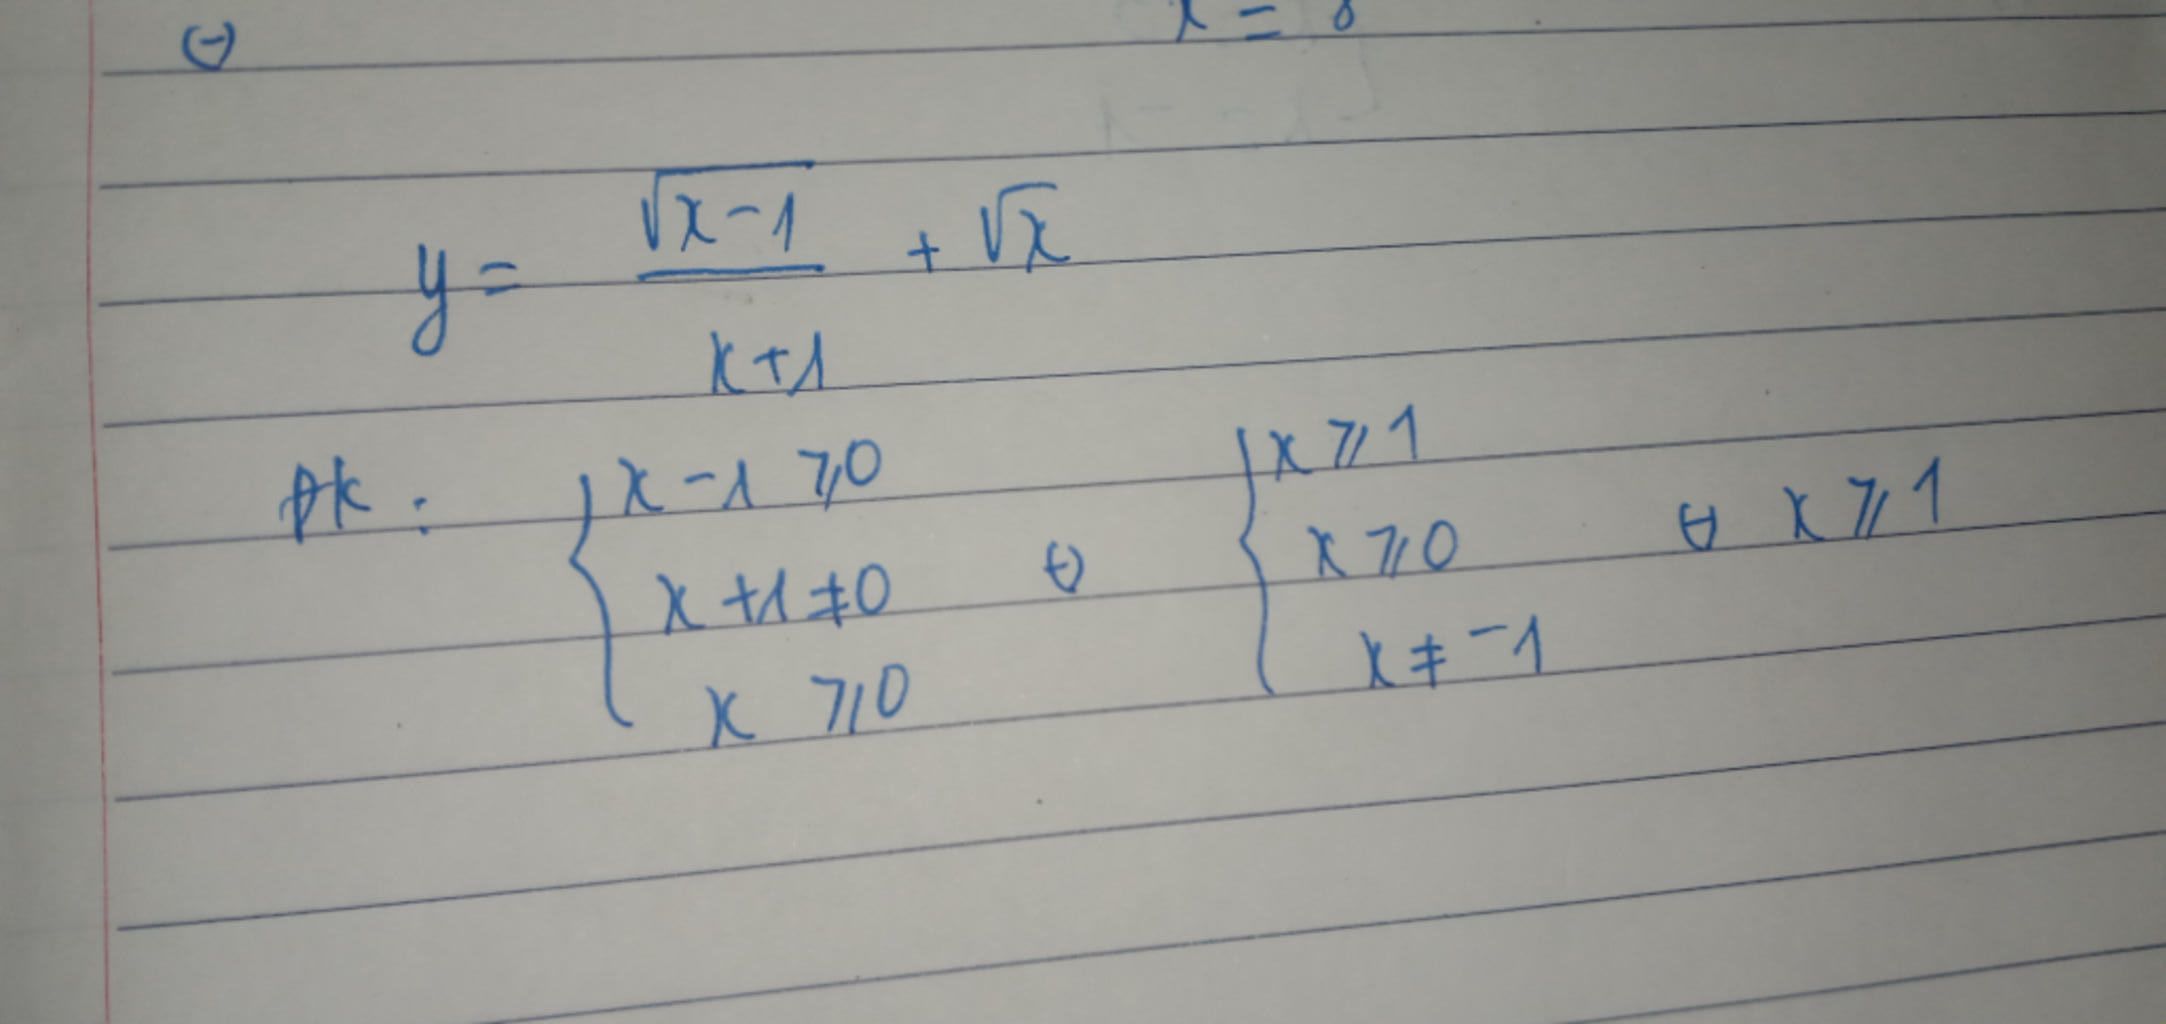 ⇔ x =
y = \frac{\sqrt{x-1}}{x+1} + \sqrt{x}
đk : \begin{cases} x-1 \geqslant 0 \\ x+1 \neq 0 \\ x \geqslant 0 \end{cases} ⇔ \begin{cases} x \geqslant 1 \\ x \geqslant 0 \\ x \neq -1 \end{cases} ⇔ x \geqslant 1